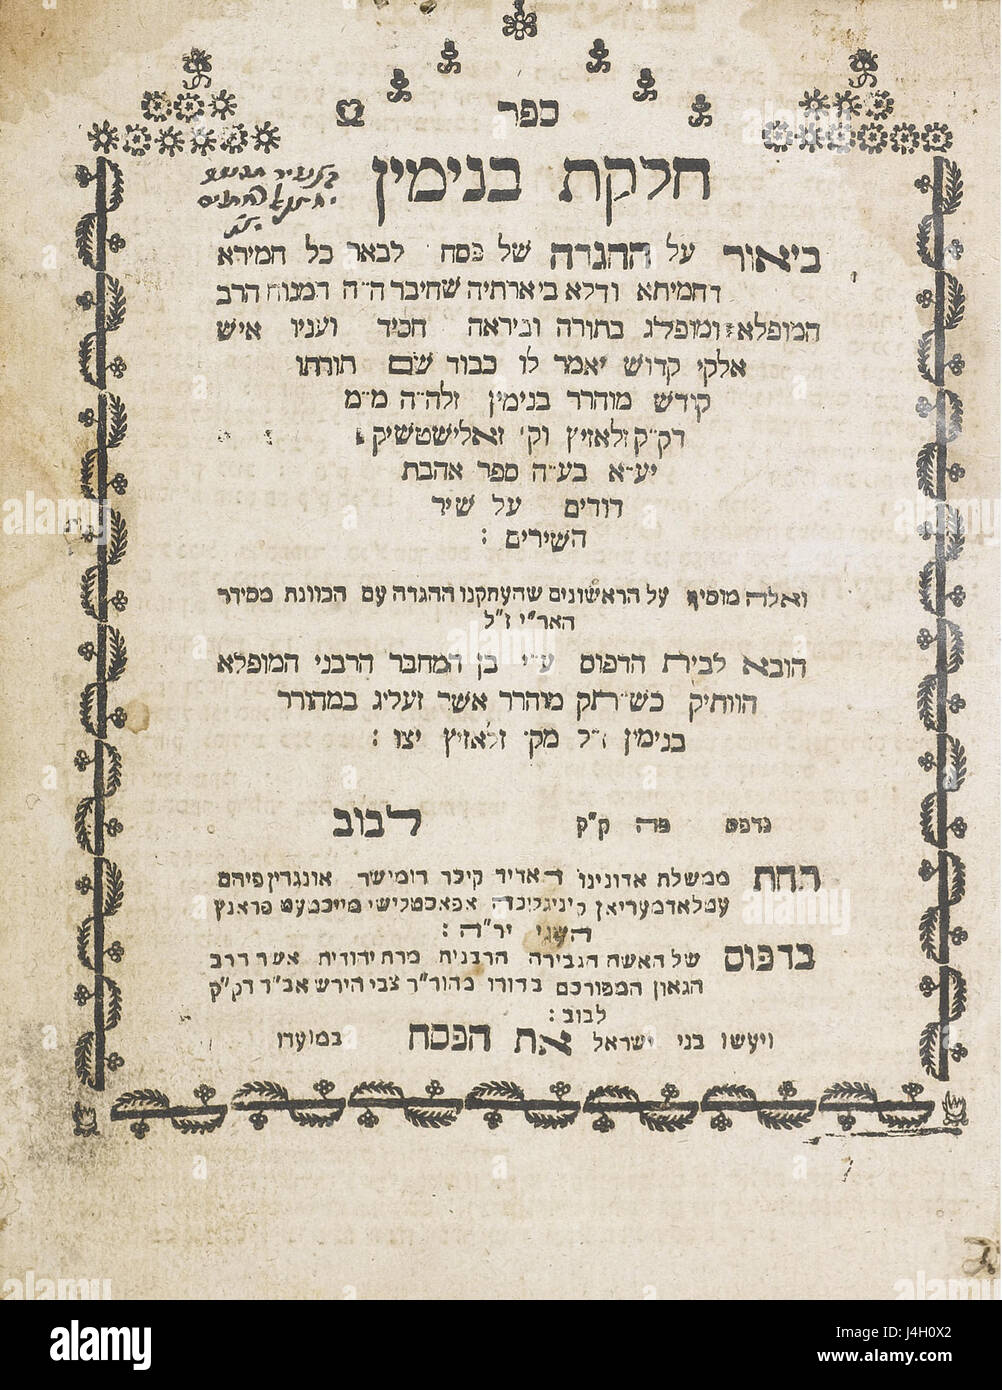 ספר
חלקת בנימין
ביאור על ההגדה של פסח לבאר כל חמירא
דחמיתא ודלא ביארתיה שחיבר ה״ה המנוח הרב
המופלא ומופלג בתורה וביראה חסיד ועניו איש
אלקי קדוש יאמר לו כבוד שם תורתו
קודש מוהרר בנימין זלה״ה מ״מ
דק״ק זלאזיץ וק׳ זאלישטשיק
יע״א בע״ה ספר אהבת
דודים על שיר
השירים :
ואלה מוסיף על הראשונים שהעתקנו ההגדה עם הכוונת מסידר
האר״י ז״ל
הובא לבית הדפוס ע״י בן המחבר הרבני המופלא
הוותיק מוהרר אשר זעליג במהורר
בנימין ז״ל מק״ זלאזיץ יצו :
נדפס פה ק״ק לבוב
תחת ממשלת אדונינו האדיר קיסר רומישר אונגרין פיהם
אפאסטלישי מייכטעט פראנץ
השני יר״ה :
בדפוס של האשה הגבירה הרבנית מרת יהודית אשר הרב
הגאון המפורסם בדורו מהור״ר צבי הירש אב״ד דק״ק
לבוב :
ויעשו בני ישראל את הפסח במועדו
alamy
a
alamy stock photo
J4H0X2
www.alamy.com